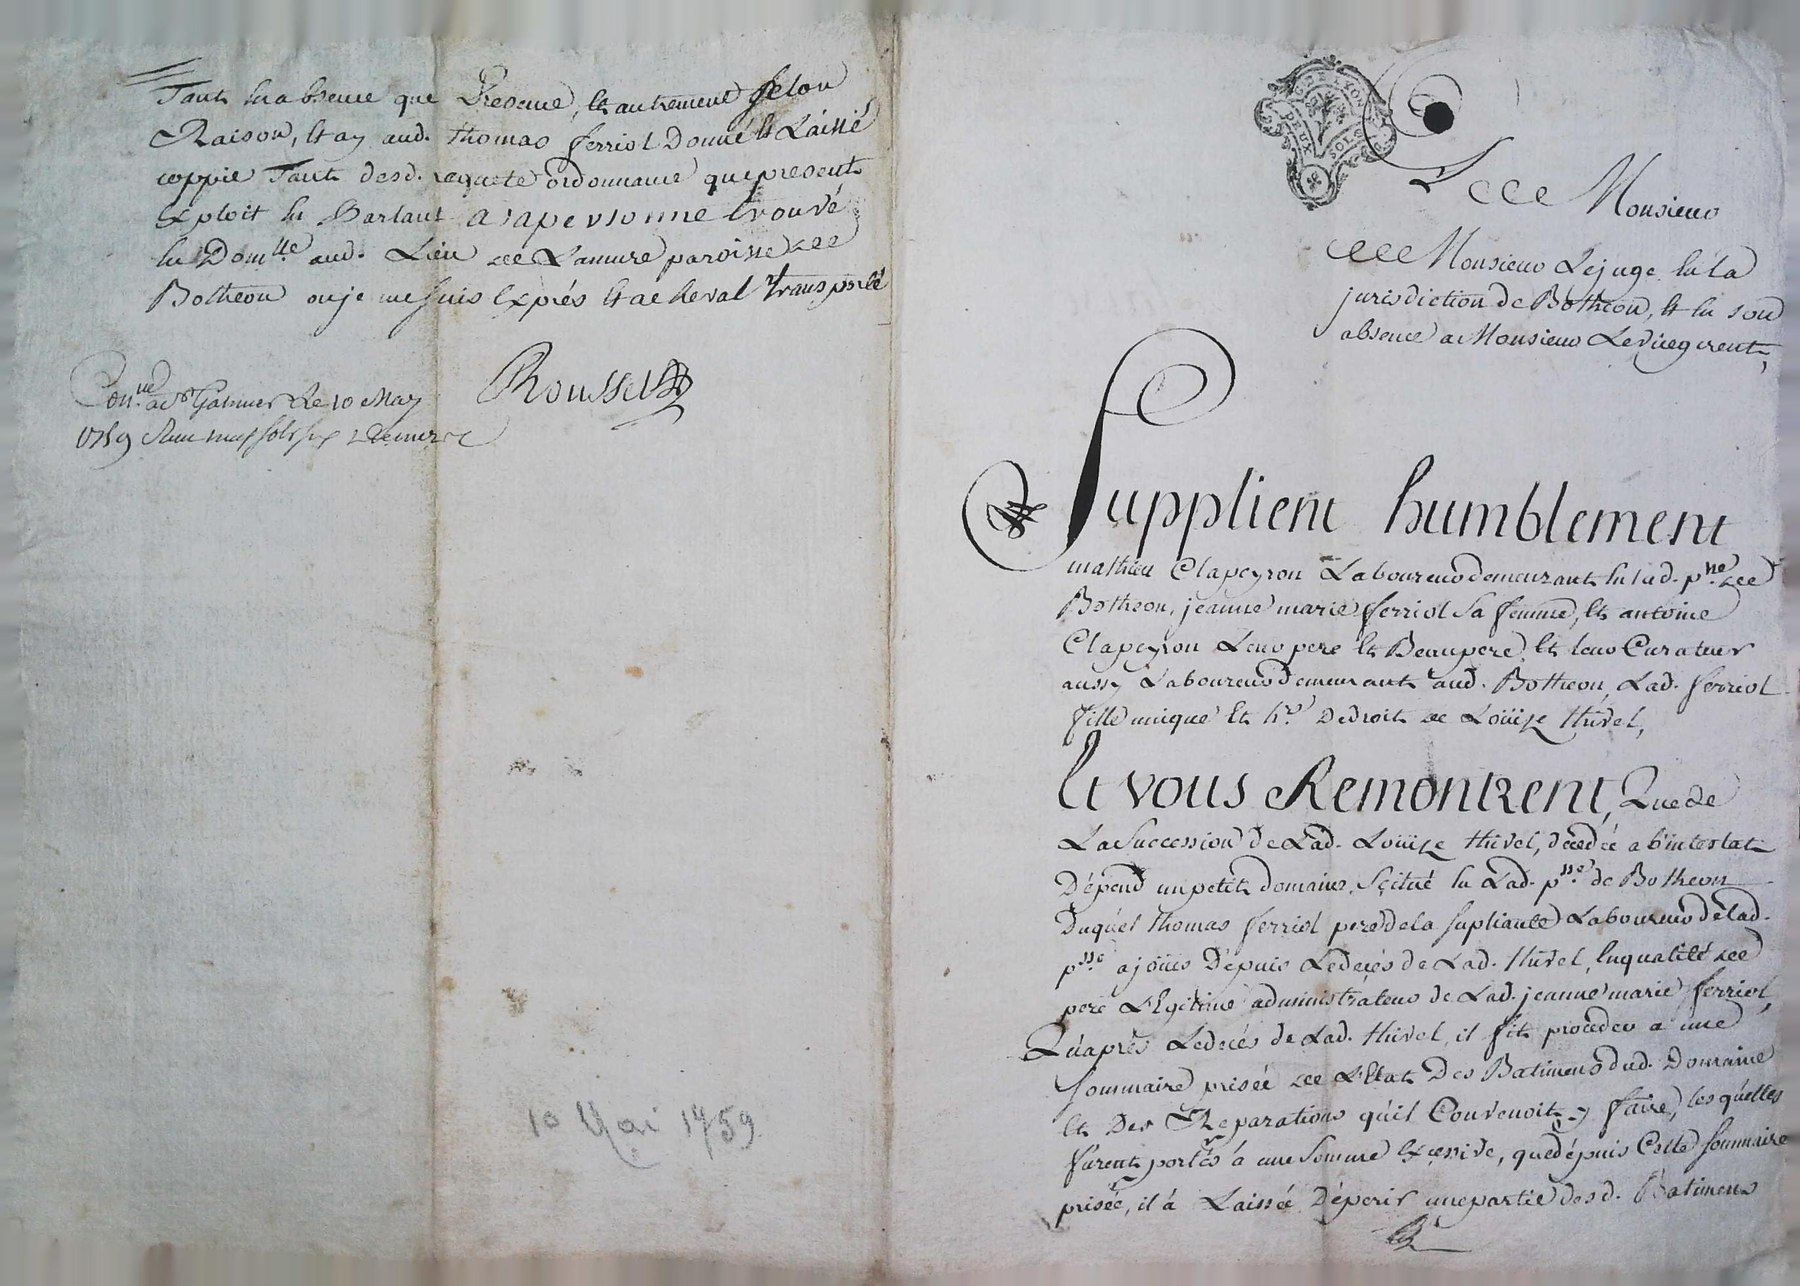 Tant en absence que Presence, et autrement selon
Raison, et ay aud. thomas ferriol Donné et Laissé
coppie Tant desd. requete ordonnance que present
Exploit en Parlant a sa personne trouvé
en Dom.lle aud. Lieu de Lamure paroisse de
Botheon ou je me suis Exprés et a cheval transporté
Rousset
Con.lle a St Galmier Le 10 May
1759
10 Mai 1759
GEN. DE LYON
DEUX SOLS
A Monsieur
Monsieur Le juge en la
jurisdiction de Botheon, et en son
absence a Monsieur Le vicegerent,
Supplient humblement
mathieu Clapeyron Laboureur demeurant en lad. p.sse de
Botheon, jeanne marie ferriol sa femme, et antoine
Clapeyron Leur pere et Beaupere, et leur Curateur
aussy Laboureur demeurant aud. Botheon, Lad. ferriol
fille unique et h.re De droit de Loüise thivel,
Et vous Remontrent, Que de
La Succession de Lad. Loüise thivel, décedée ab intestat
Dépend un petit domaine, Scitué en Lad. p.sse de Botheon
Duquel thomas ferriol pere de la supliante Laboureur de lad.
p.sse a joüis Depuis Le decés de Lad. thivel, en qualité de
pere Légitime administrateur de Lad. jeanne marie ferriol,
Qu'aprés Le decés de Lad. thivel, il fit proceder a une
sommaire prisée de L'Etat Des Batimens dud. Domaine
et Des Reparations qu'il Convenoit y faire, lesquelles
furent portés à une somme Excessive, que dépuis Cette sommaire
prisée, il à Laissée Déperir une partie desd. Batimens